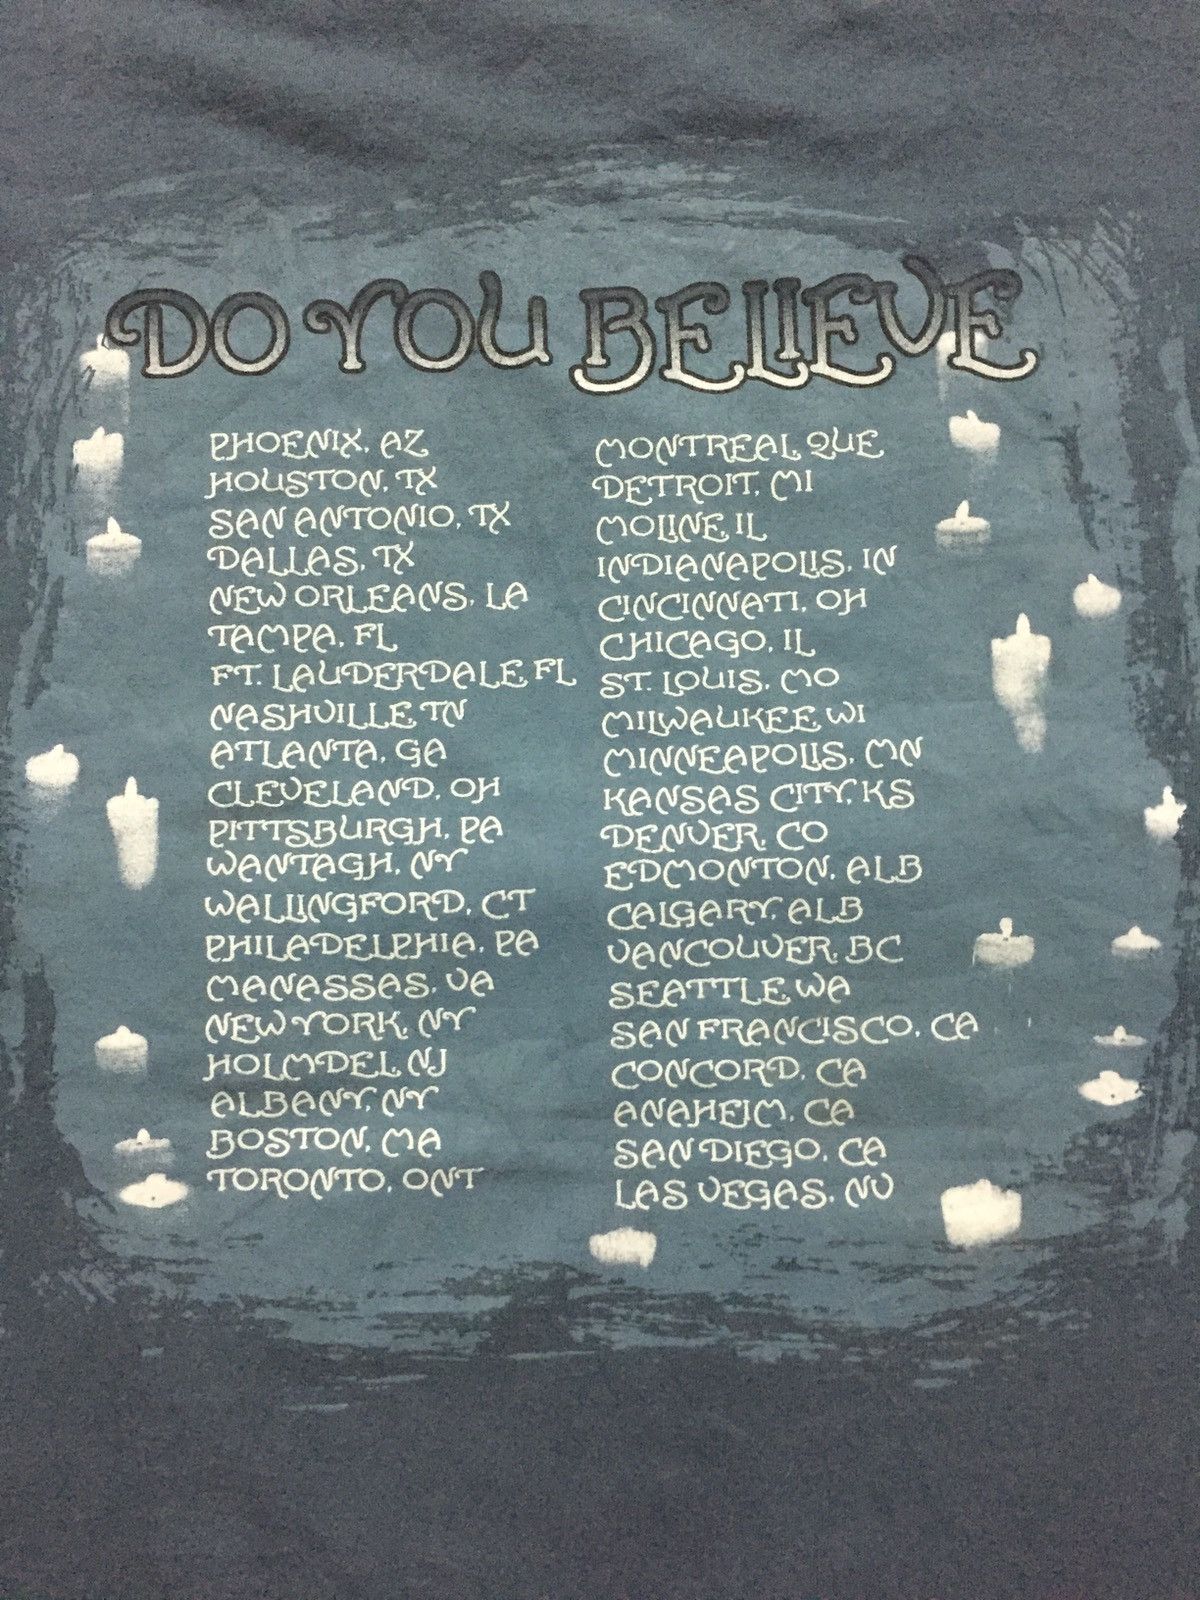 DO YOU BELIEVE
PHOENIX, AZ
HOUSTON, TX
SAN ANTONIO, TX
DALLAS, TX
NEW ORLEANS, LA
TAMPA, FL
FT. LAUDERDALE, FL
NASHVILLE, TN
ATLANTA, GA
CLEVELAND, OH
PITTSBURGH, PA
WANTAGH, NY
WALLINGFORD, CT
PHILADELPHIA, PA
MANASSAS, VA
NEW YORK, NY
HOLMDEL, NJ
ALBANY, NY
BOSTON, MA
TORONTO, ONT
MONTREAL, QUE
DETROIT, MI
MOLINE, IL
INDIANAPOLIS, IN
CINCINNATI, OH
CHICAGO, IL
ST. LOUIS, MO
MILWAUKEE, WI
MINNEAPOLIS, MN
KANSAS CITY, KS
DENVER, CO
EDMONTON, ALB
CALGARY, ALB
VANCOUVER, BC
SEATTLE, WA
SAN FRANCISCO, CA
CONCORD, CA
ANAHEIM, CA
SAN DIEGO, CA
LAS VEGAS, NV